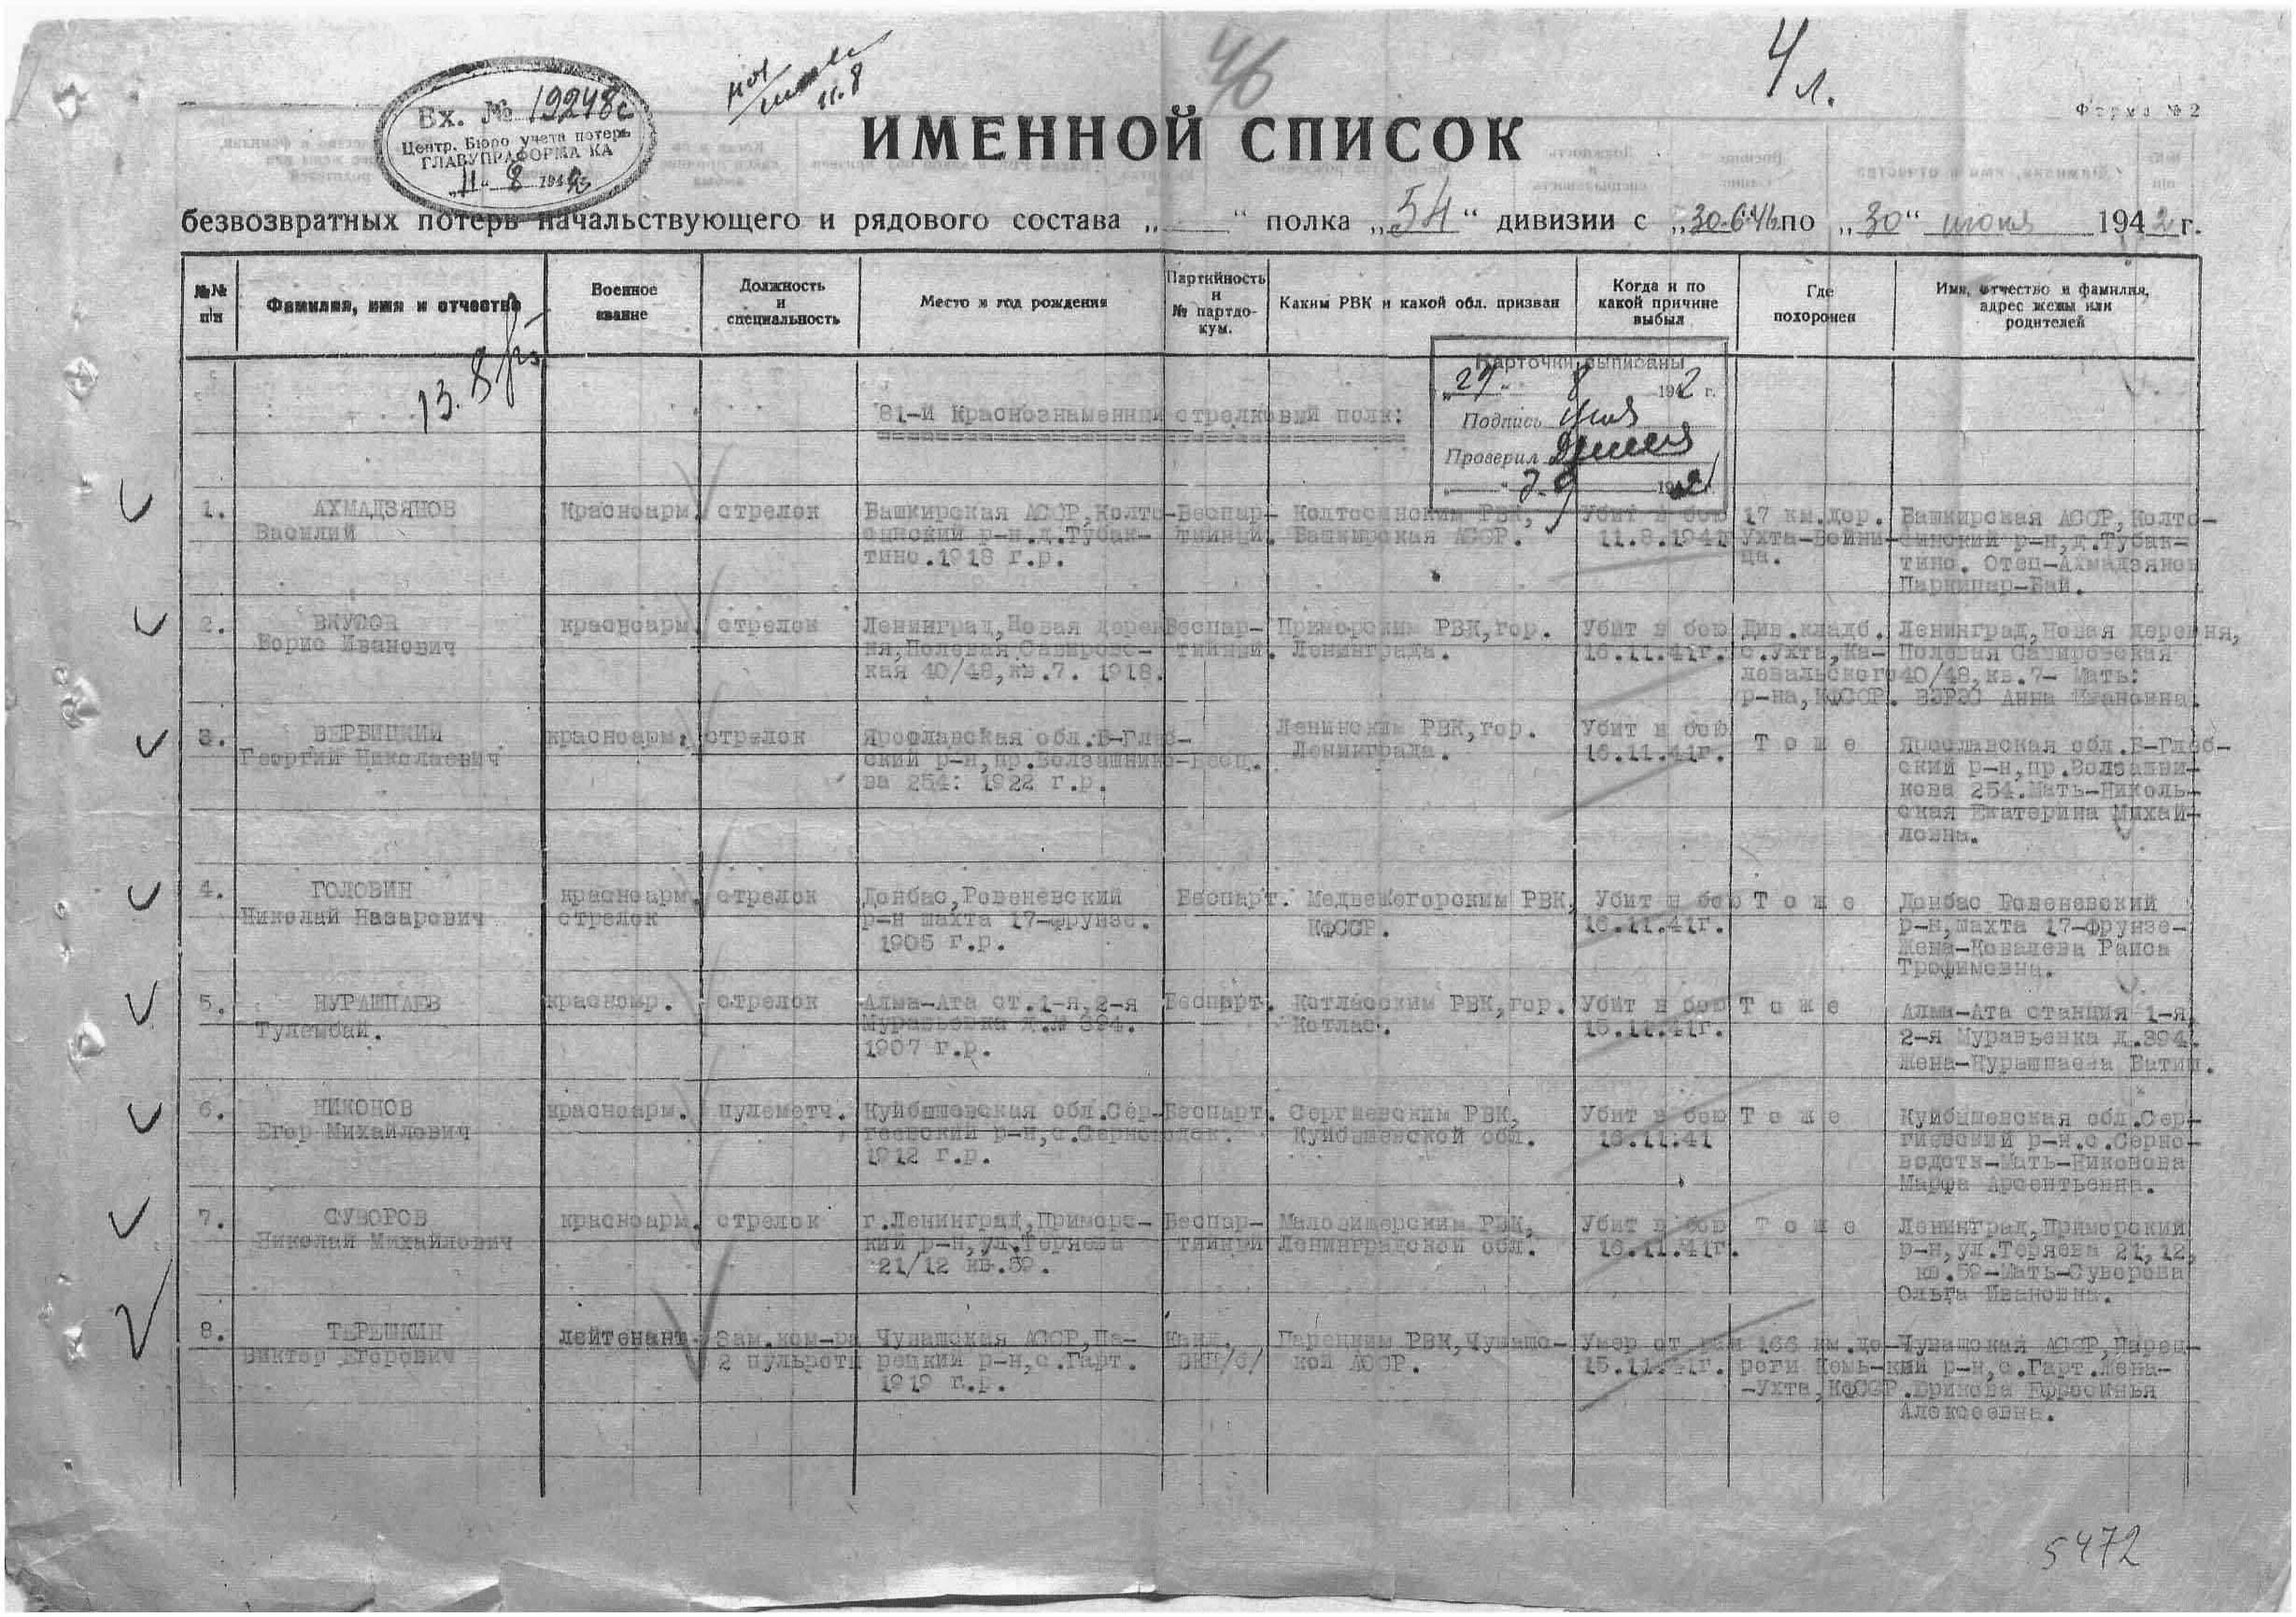 46
4 л.
Форма № 2
Вх. № 19248с
Центр. Бюро учета потерь
ГЛАВУПРАФОРМА КА
„11“ 8 194
11.8
ИМЕННОЙ СПИСОК
безвозвратных потерь начальствующего и рядового состава „ “ полка „54“ дивизии с „ 30.6. по „30“ июня 1942 г.
№№ п/п
Фамилия, имя и отчество
Военное звание
Должность и специальность
Место и год рождения
Партийность и № партдокум.
Каким РВК и какой обл. призван
Когда и по какой причине выбыл
Где похоронен
Имя, отчество и фамилия, адрес жены или родителей
13.8
Карточки выписаны
„27“ 8 1942 г.
Подпись
Проверил
81-й Краснознаменный стрелковый полк:
1. АХМАДЗЯНОВ Красноарм. стрелок Башкирская АССР, Колта- Беспар- Колтосинским РВК, Убит в бою 17 км.дор. Башкирская АССР, Колта-
Василий синский р-н.д.Тубак- тийный. Башкирская АССР. 11.8.1941 Ухта-Войни- синский р-н,д.Тубак-
тино.1918 г.р. ца. тино. Отец-Ахмадзянов
Бай.
2. ВКУСОВ красноарм. стрелок Ленинград,Новая дерев Беспар- Приморским РВК,гор. Убит в бою Див.кладб. Ленинград,Новая деревня,
Борис Иванович ня,Полевая тийный. Ленинграда. 16.11.41г. с.Ухта,Ка- Полевая
кая 40/48,кв.7. 1918. левальского 40/48,кв.7- Мать:
р-на,КФССР. Анна Ивановна.
3. ВЕРБИЦКИЙ красноарм. стрелок Ярославская обл.Б-Глеб- Ленинским РВК,гор. Убит в бою Т о ж е Ярославская обл.Б-Глеб-
Георгий Николаевич ский р-н,пр. Ленинграда. 16.11.41г. ский р-н,пр.
ва 254: 1922 г.р. кова 254.Мать-Николь-
ская Екатерина Михай-
ловна.
4. ГОЛОВИН красноарм. стрелок Донбас,Ровеневский Беспарт. Медвежегорским РВК, Убит в бою Т о ж е Донбас Ровеневский
Николай Назарович стрелок р-н шахта 17-Фрунзе. КФССР. 16.11.41г. р-н,шахта 17-Фрунзе-
1905 г.р. Жена-Ковалева Раиса
Трофимовна.
5. НУРАШПАЕВ красноар. стрелок Алма-Ата ст.1-я,2-я Беспарт. Котласским РВК,гор. Убит в бою Т о ж е Алма-Ата станция 1-я,
Тулембай. Муравьевка д.№ 394. Котлас. 15.11.41г. 2-я Муравьевка д.394.
1907 г.р. Жена-Нурашпаева Батии.
6. НИКОНОВ красноарм. пулеметч. Куйбышевская обл.Сер- Беспарт. Сергиевским РВК, Убит в бою Т о ж е Куйбышевская обл.Сер-
Егор Михайлович геевский р-н,с. Куйбышевской обл. 16.11.41 гиевский р-н.с.Серно-
1912 г.р. водотк-Мать-Никонова
Марфа Арсентьевна.
7. СУВОРОВ красноарм. стрелок г.Ленинград,Приморс- Беспар- Маловишерским РВК, Убит в бою Т о ж е Ленинград,Приморский
Николай Михайлович кий р-н,ул.Теряева тийный Ленинградской обл. 16.11.41г. р-н,ул.Теряева 21,12,
21/12 кв.59. кв.59-Мать-Суворова
Ольга Ивановна.
8. ТЕРЕШКИН лейтенант. Зам.ком-ра Чувашская АССР,Па- Канд. Парецким РВК,Чувашс- Умер от ран 166 км.до- Чувашская АССР,Парец-
Виктор Егорович 2 пульроты рецкий р-н,с.Гарт. ВКП/б/ кой АССР. 15.11.41г. роги Кемь- кий р-н,с.Гарт.Жена-
1919 г.р. -Ухта,КФССР. Ефросинья
Алексеевна.
5472